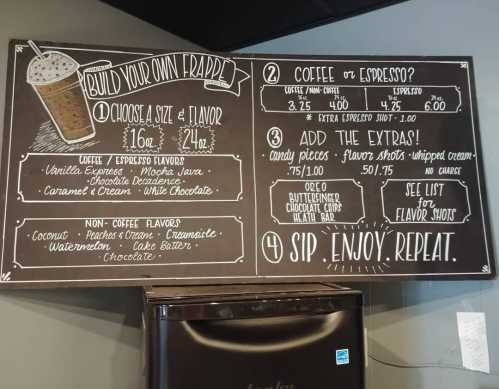 BUILD YOUR OWN FRAPPE
1 CHOOSE A SIZE & FLAVOR
16oz 24oz
COFFEE / ESPRESSO FLAVORS
· Vanilla Express · Mocha Java ·
· Chocolate Decadence ·
Caramel & Cream · White Chocolate ·
NON-COFFEE FLAVORS
Coconut · Peaches & Cream · Creamsicle
· Watermelon · Cake Batter ·
Chocolate ·
2 COFFEE or ESPRESSO?
COFFEE / NON-COFFEE ESPRESSO
16oz 24oz 16oz 24oz
3.25 4.00 4.25 6.00
* EXTRA ESPRESSO SHOT - 1.00
3 ADD THE EXTRAS!
· candy pieces · flavor shots · whipped cream ·
.75/1.00 .50/.75 NO CHARGE
OREO
BUTTERFINGER
CHOCOLATE CHIPS
HEATH BAR
SEE LIST
for
FLAVOR SHOTS
4 SIP. ENJOY. REPEAT.